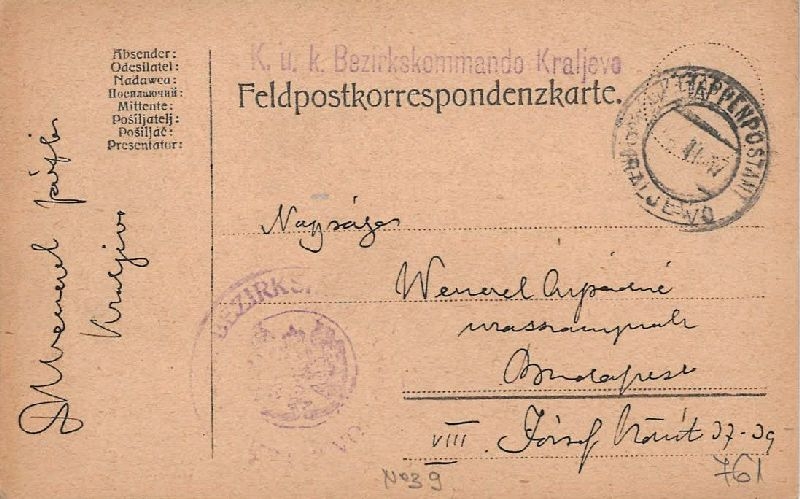 K. u. k. Bezirkskommando Kraljevo
Feldpostkorrespondenzkarte.
Absender:
Odesilatel:
Nadawca:
Посилаючий:
Mittente:
Pošiljatelj:
Pošiljač:
Presentator:
K. u. K. ETAPPENPOSTAMT
KRALJEVO
Wenczel
Kraljevo
Nagyságos
Wenczel Árpádné
urasszonynak
Budapest
VIII. József körút 37-39
BEZIRKS
VO
No 39
761